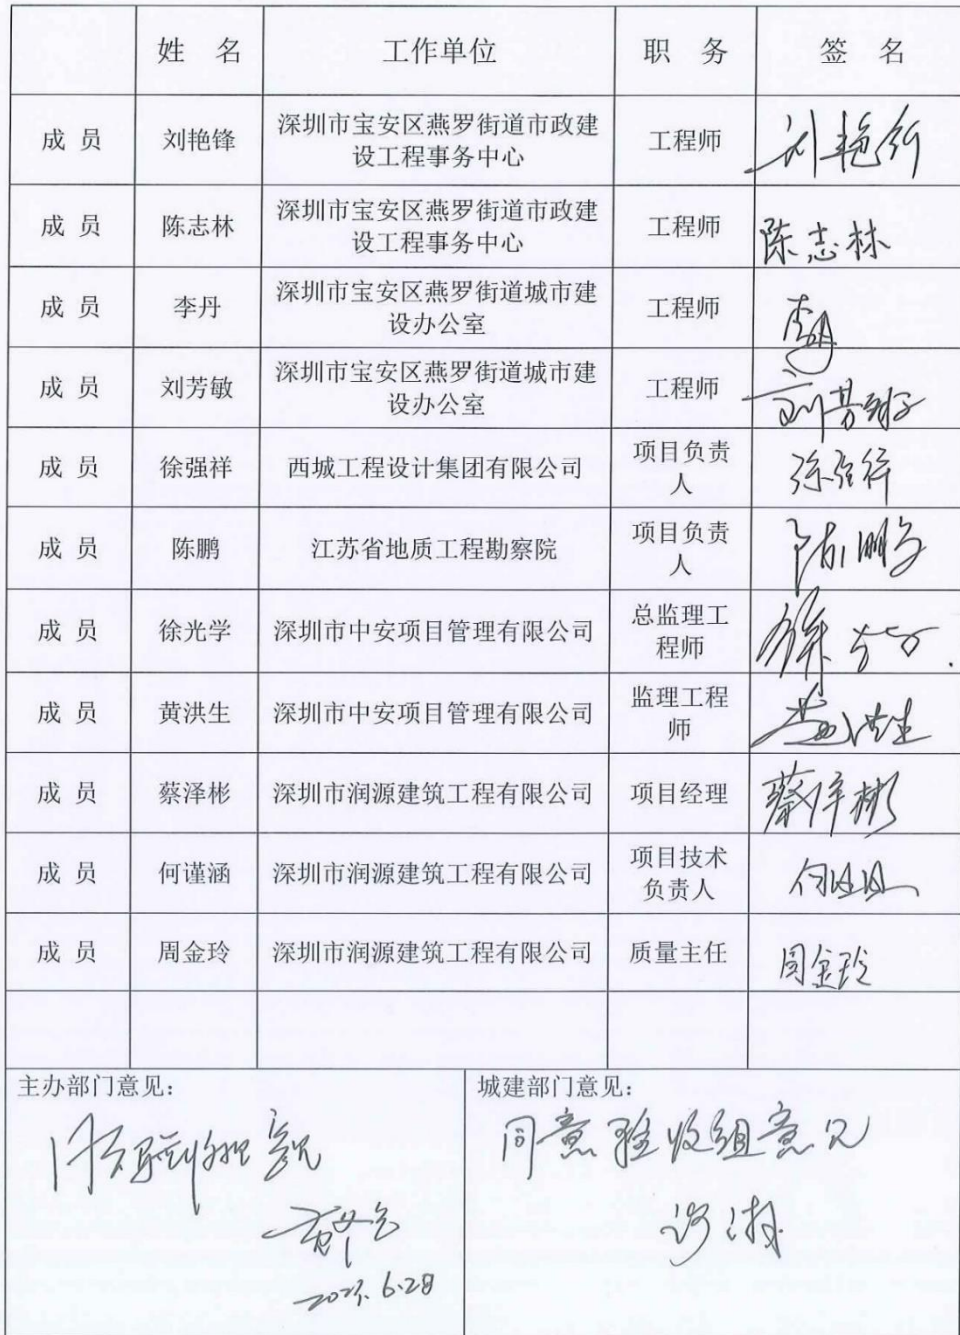 姓 名 工作单位 职 务 签 名
成 员 刘艳锋 深圳市宝安区燕罗街道市政建 工程师 刘艳锋
设工程事务中心
成 员 陈志林 深圳市宝安区燕罗街道市政建 工程师 陈志林
设工程事务中心
成 员 李丹 深圳市宝安区燕罗街道城市建 工程师 李丹
设办公室
成 员 刘芳敏 深圳市宝安区燕罗街道城市建 工程师 刘芳敏
设办公室
成 员 徐强祥 西城工程设计集团有限公司 项目负责 徐强祥
人
成 员 陈鹏 江苏省地质工程勘察院 项目负责 陈鹏
人
成 员 徐光学 深圳市中安项目管理有限公司 总监理工 徐光学
程师
成 员 黄洪生 深圳市中安项目管理有限公司 监理工程 黄洪生
师
成 员 蔡泽彬 深圳市润源建筑工程有限公司 项目经理 蔡泽彬
成 员 何谨涵 深圳市润源建筑工程有限公司 项目技术 何谨涵
负责人
成 员 周金玲 深圳市润源建筑工程有限公司 质量主任 周金玲
主办部门意见：
城建部门意见：
同意验收组意见